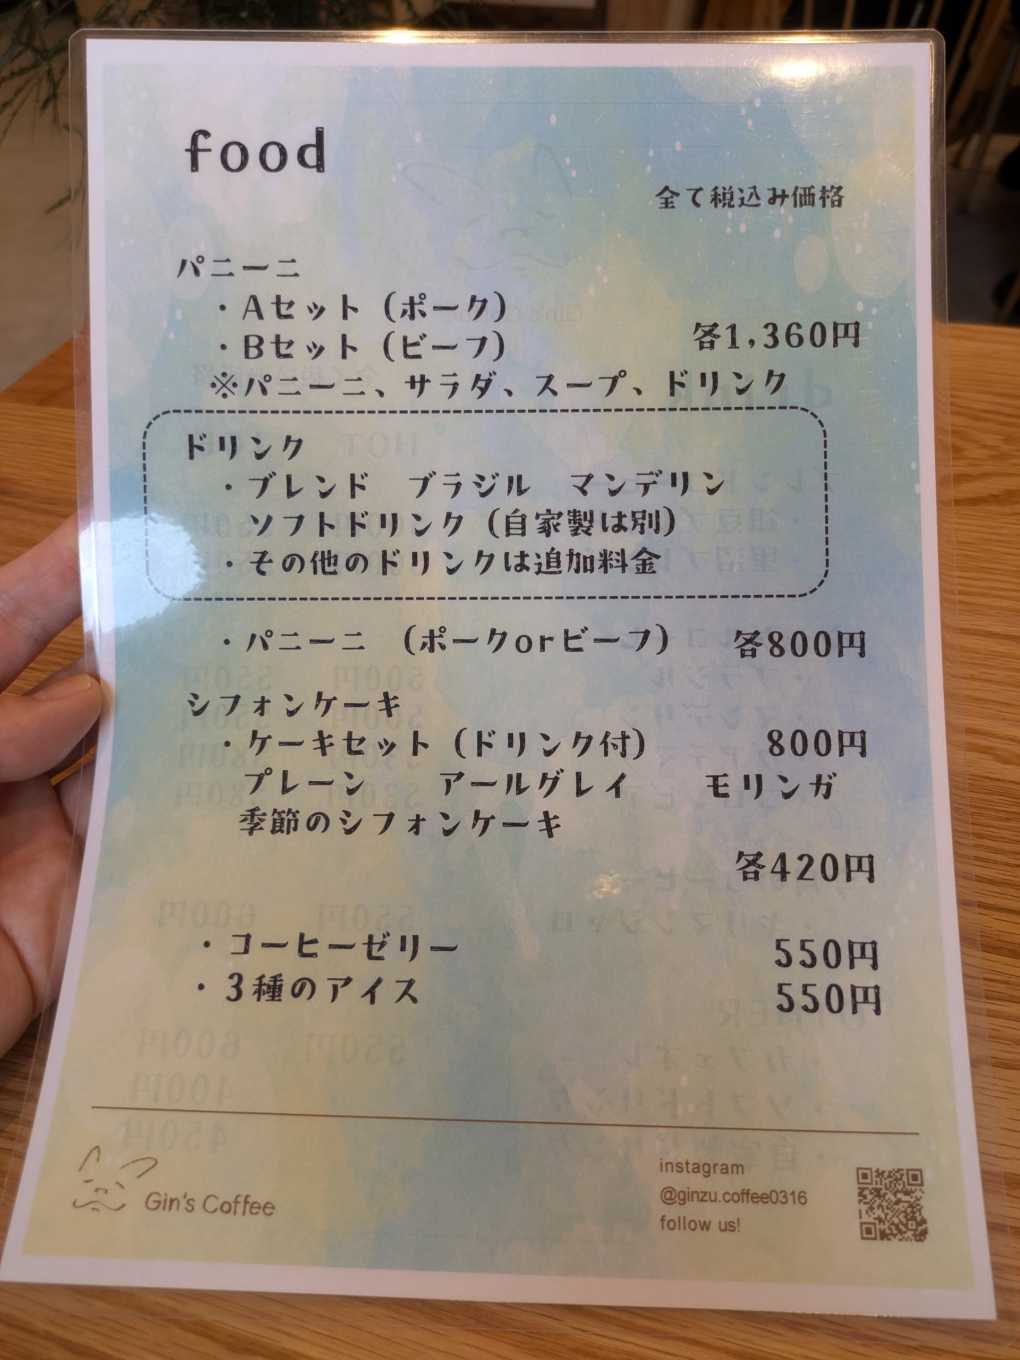 food
全て税込み価格
パニーニ
・Aセット（ポーク）
・Bセット（ビーフ） 各1,360円
※パニーニ、サラダ、スープ、ドリンク
ドリンク
・ブレンド ブラジル マンデリン
ソフトドリンク（自家製は別）
・その他のドリンクは追加料金
・パニーニ （ポークorビーフ） 各800円
シフォンケーキ
・ケーキセット（ドリンク付） 800円
プレーン アールグレイ モリンガ
季節のシフォンケーキ
各420円
・コーヒーゼリー 550円
・3種のアイス 550円
Gin's Coffee
instagram
@ginzu.coffee0316
follow us!